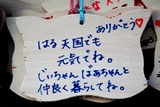 ありがとう♡
はる 天国でも
元気でね。
じいちゃん ばあちゃんと
仲良く暮らしてね。